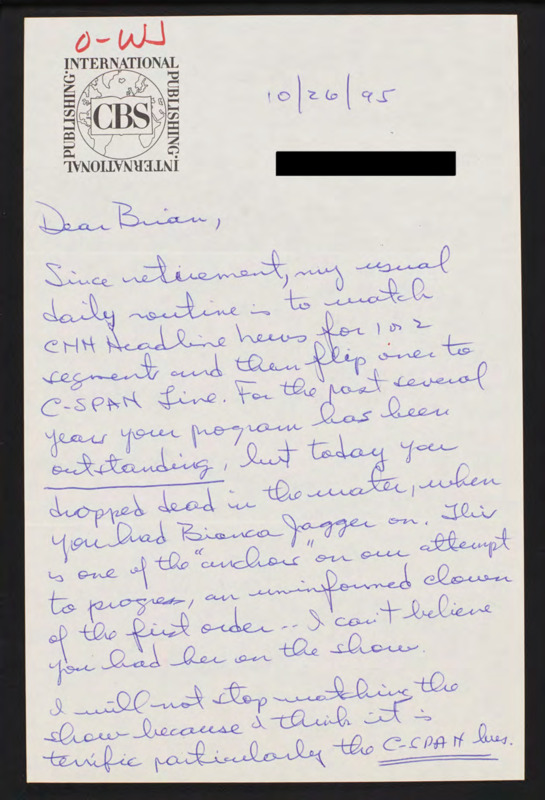 O-WJ
INTERNATIONAL
PUBLISHING
CBS
PUBLISHING
INTERNATIONAL
10/26/95
Dear Brian,
Since retirement, my usual
daily routine is to watch
CNN Headline News for 1 or 2
segments and then flip over to
C-SPAN Line. For the past several
years your program has been
outstanding, but today you
dropped dead in the water, when
you had Bianca Jagger on. This
is one of the "anchors" on our attempt
to progress, an uninformed clown
of the first order -- I can't believe
you had her on the show.
I will not stop watching the
show because I think it is
terrific particularly the C-SPAN lines.